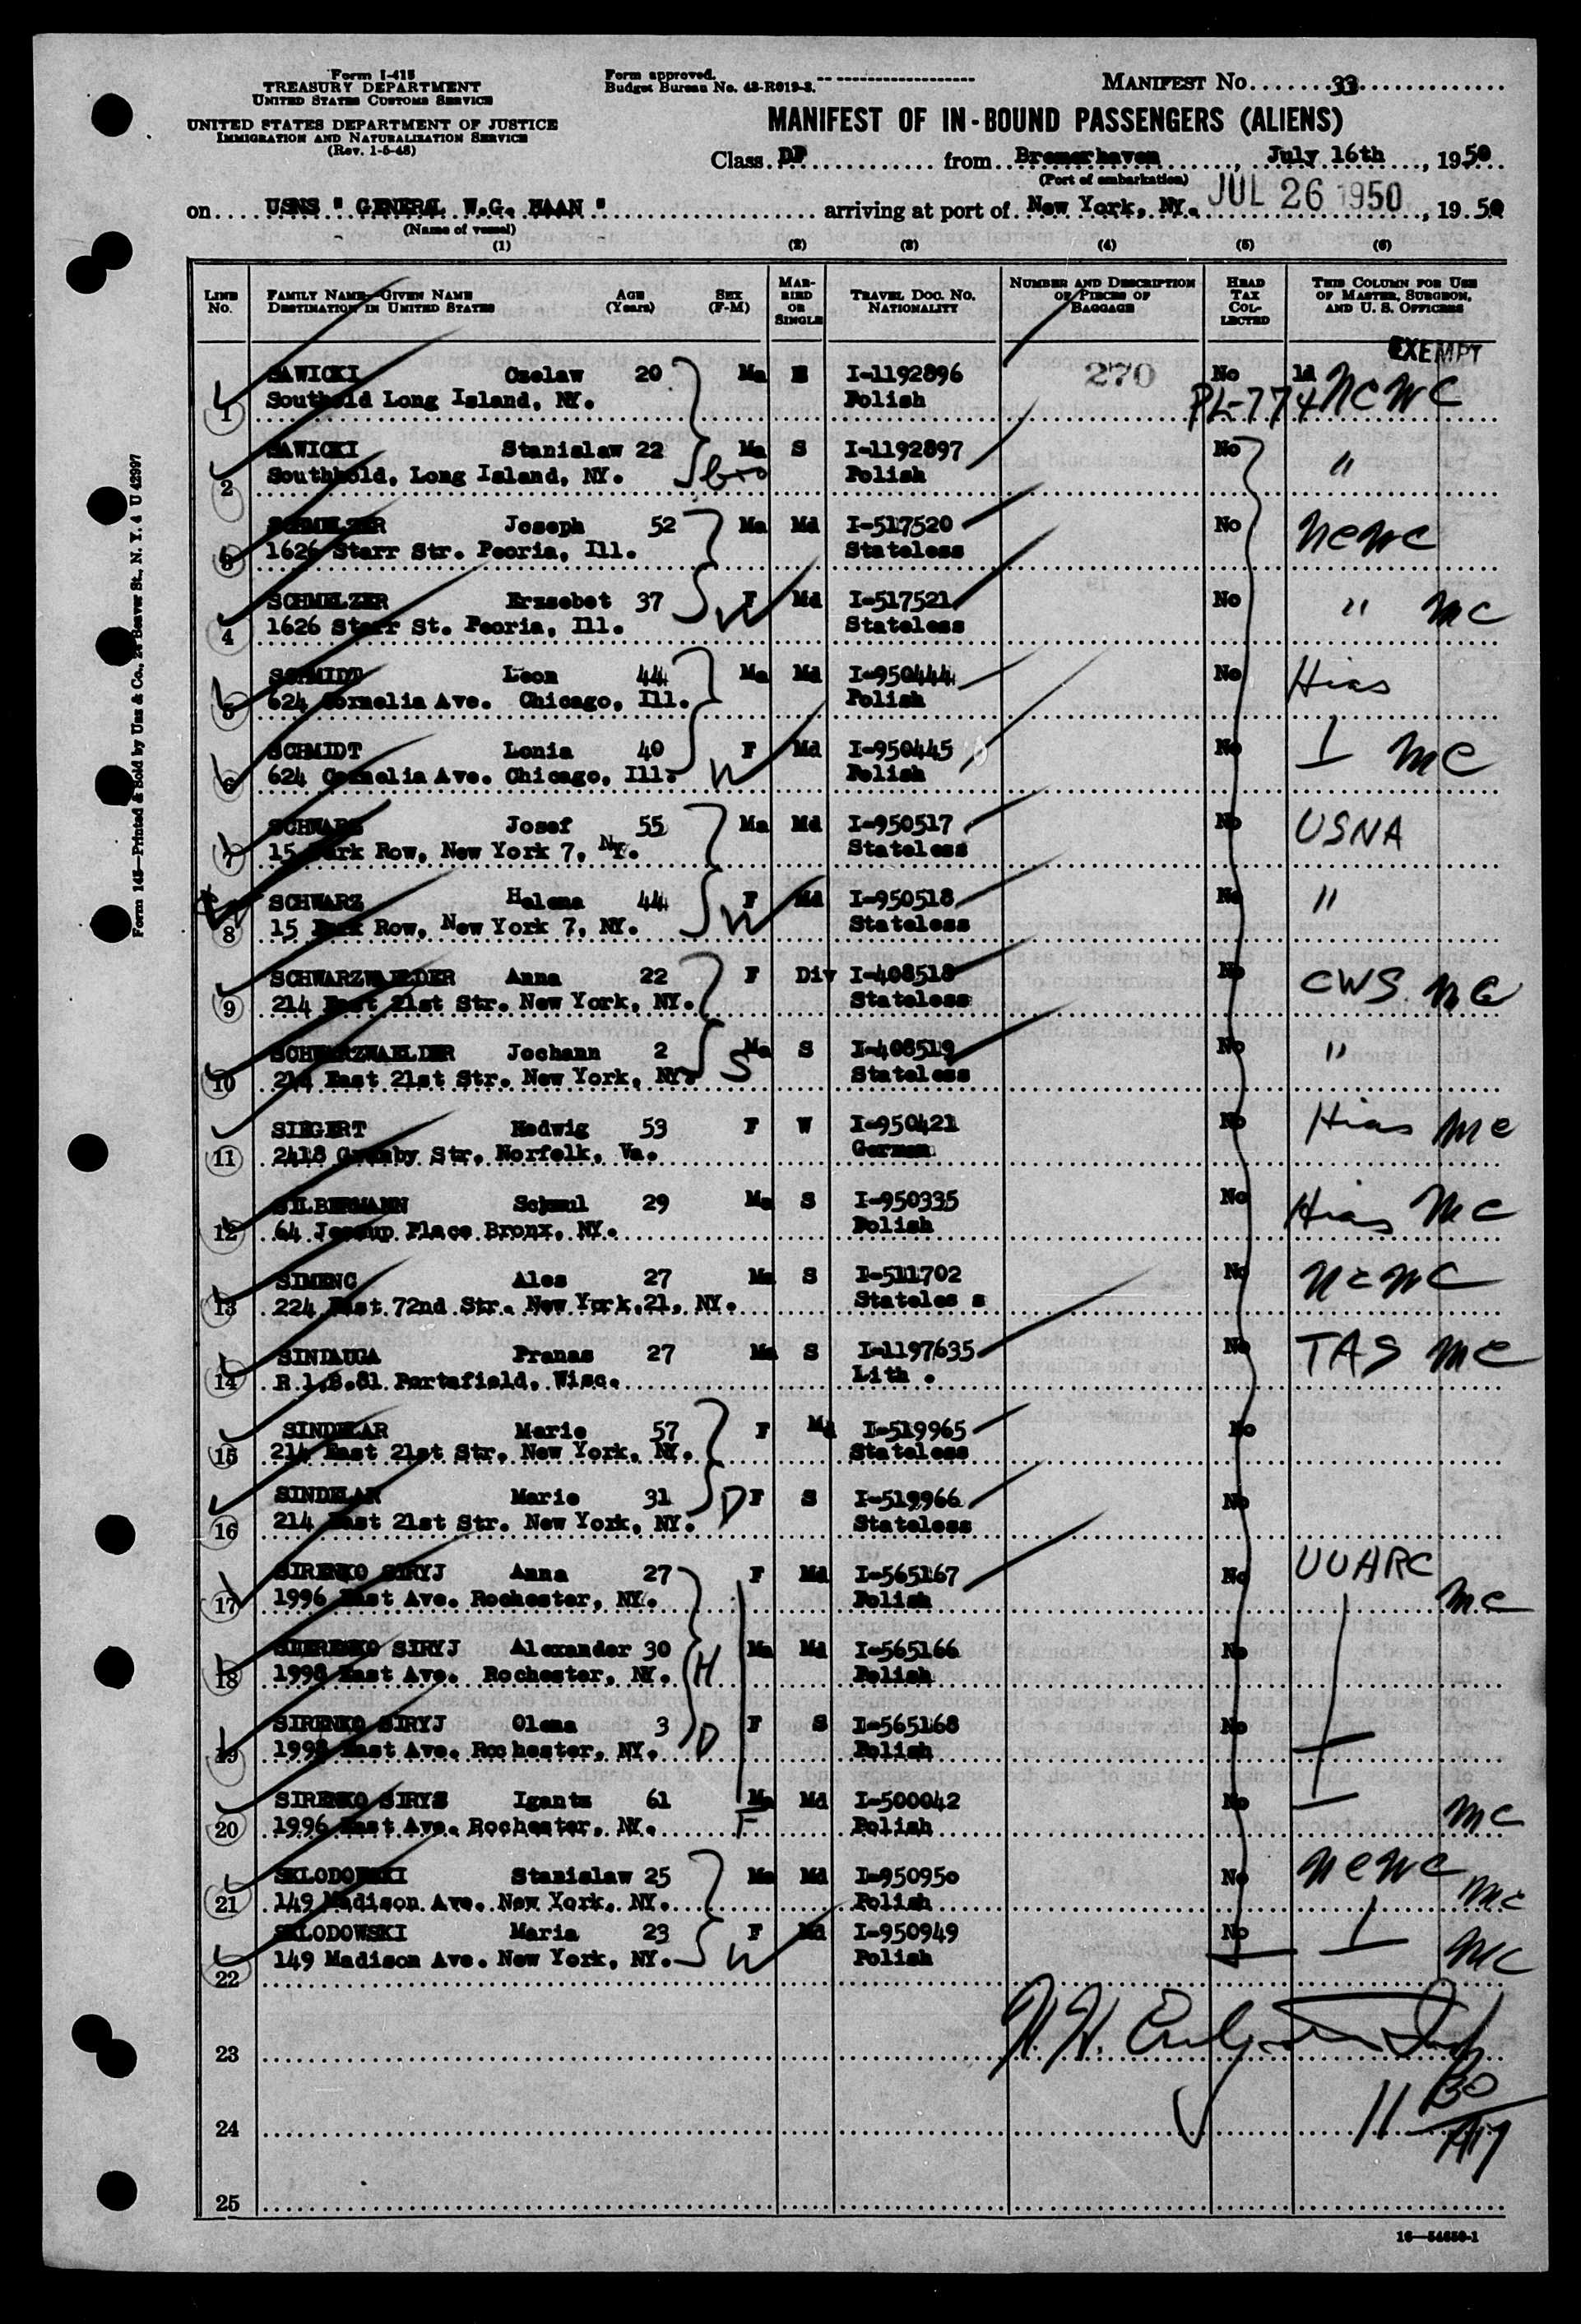 Form I-415
TREASURY DEPARTMENT
UNITED STATES CUSTOMS SERVICE
UNITED STATES DEPARTMENT OF JUSTICE
IMMIGRATION AND NATURALIZATION SERVICE
(Rev. 1-5-48)
Form approved.
Budget Bureau No. 43-R019-3.
MANIFEST No. 33
MANIFEST OF IN-BOUND PASSENGERS (ALIENS)
Class DP from Bremerhaven, July 16th, 1950
(Port of embarkation)
on USNS " GENERAL W.G. HAAN " arriving at port of New York, NY. JUL 26 1950, 19 50
(Name of vessel)
(1) (2) (3) (4) (5) (6)
LINE No. FAMILY NAME—GIVEN NAME DESTINATION IN UNITED STATES AGE (Years) SEX (F-M) MARRIED OR SINGLE TRAVEL DOC. NO. NATIONALITY NUMBER AND DESCRIPTION OF PIECES OF BAGGAGE HEAD TAX COLLECTED THIS COLUMN FOR USE OF MASTER, SURGEON, AND U. S. OFFICERS
EXEMPT
SAWICKI Czeslaw 20 Ma I-1192896 270 No NCWC
1 Southold Long Island, NY. Polish PL-774
SAWICKI Stanislaw 22 Ma S I-1192897 No "
2 Southhold, Long Island, NY. bro Polish
SCHMELZER Joseph 52 Ma Md I-517520 No NCWC
3 1626 Starr Str. Peoria, Ill. Stateless
SCHMELZER Erzsebet 37 F Md I-517521 No " MC
4 1626 Starr St. Peoria, Ill. W Stateless
SCHMIDT Leon 44 Ma Md I-950444 No Hias
5 624 Cornelia Ave. Chicago, Ill. Polish
SCHMIDT Lonia 40 F Md I-950445 No MC
6 624 Cornelia Ave. Chicago, Ill. W Polish
SCHWARZ Josef 55 Ma Md I-950517 No USNA
7 15 Park Row, New York 7, NY. Stateless
SCHWARZ Helena 44 F Md I-950518 No "
8 15 Park Row, New York 7, NY. W Stateless
SCHWARZWAELDER Anna 22 F Div I-408518 No CWS MC
9 214 East 21st Str. New York, NY. Stateless
SCHWARZWAELDER Jochann 2 Ma S I-408519 No "
10 214 East 21st Str. New York, NY. S Stateless
SIEGERT Hedwig 53 F W I-950421 No Hias MC
11 2418 Granby Str. Norfolk, Va. German
SILBERMANN Schmul 29 Ma S I-950335 No Hias MC
12 64 Jessup Place Bronx, NY. Polish
SIMENC Ales 27 Ma S I-511702 No NCWC
13 224 East 72nd Str. New York,21, NY. Stateles s
SINIAUGA Pranas 27 Ma S I-1197635 No TAS MC
14 R.1,B.81 Portafield, Wisc. Lith .
SINDELAR Marie 57 F Md I-519965 No
15 214 East 21st Str. New York, NY. Stateless
SINDELAR Marie 31 D F S I-519966 No
16 214 East 21st Str. New York, NY. Stateless
SIRENKO SIRYJ Anna 27 F Md I-565167 No UUARC
17 1996 East Ave. Rochester, NY. Polish MC
SIRENKO SIRYJ Alexander 30 Ma Md I-565166 No
18 1998 East Ave. Rochester, NY. H Polish
SIRENKO SIRYJ Olena 3 F S I-565168 No
19 1998 East Ave. Rochester, NY. D Polish
SIRENKO SIRYS Igantz 61 Ma Md I-500042 No MC
20 1996 East Ave. Rochester, NY. F Polish
SKLODOWSKI Stanislaw 25 Ma Md I-950950 No NCWC
21 149 Madison Ave. New York, NY. Polish MC
SKLODOWSKI Maria 23 F Md I-950949 No MC
22 149 Madison Ave. New York, NY. W Polish
23
24 11 30
25
16—54650-1
Form 145—Printed & Sold by Unz & Co., 24 Beaver St., N. Y. 4 U 42997